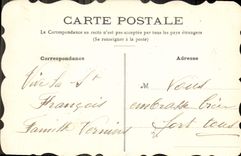 CARTE POSTALE
La Correspondance au recto n'est pas acceptée par tous les pays étrangers
(Se renseigner à la poste)
Correspondance
Adresse
Vive la St
François
Famille
M Vous
embrasse bien
fort tous